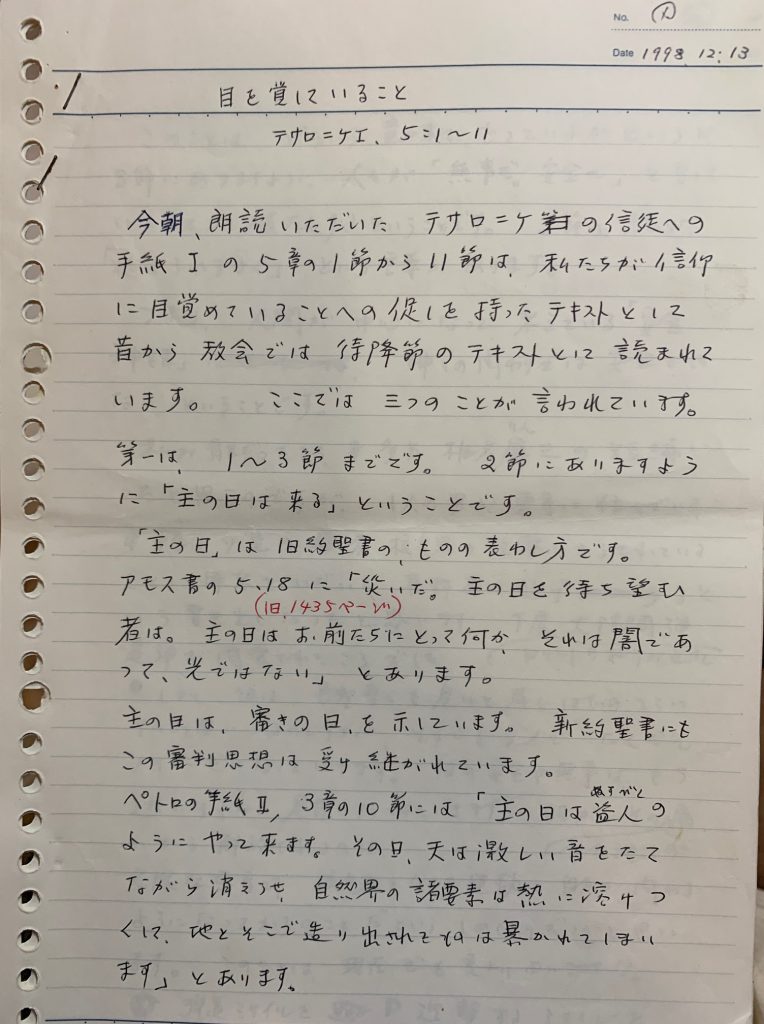 No. ①
Date 1998. 12. 13
目を覚していること
テサロニケI、5:1〜11
今朝、朗読いただいた テサロニケの信徒への
手紙Iの5章の1節から11節は、私たちが信仰
に目覚めていることへの促しを持ったテキストとして
昔から教会では待降節のテキストとして読まれて
います。 ここでは三つのことが言われています。
第一は、1〜3節までです。 2節にありますよう
に「主の日は来る」ということです。
「主の日」は旧約聖書の、ものの表わし方です。
アモス書の5.18に「災いだ。主の日を待ち望む
(旧.1435ページ)
者は。主の日はお前たちにとって何か、それは闇であ
って、光ではない」とあります。
主の日は、審きの日、を示しています。 新約聖書にも
この審判思想は受け継がれています。
ペトロの手紙II,3章の10節には「主の日は盗人の
ぬすびと
ようにやって来ます。その日、天は激しい音をたて
ながら消えうせ、自然界の諸要素は熱に溶けつ
くして、地とそこで造り出されたものは暴かれてしまい
ます」とあります。